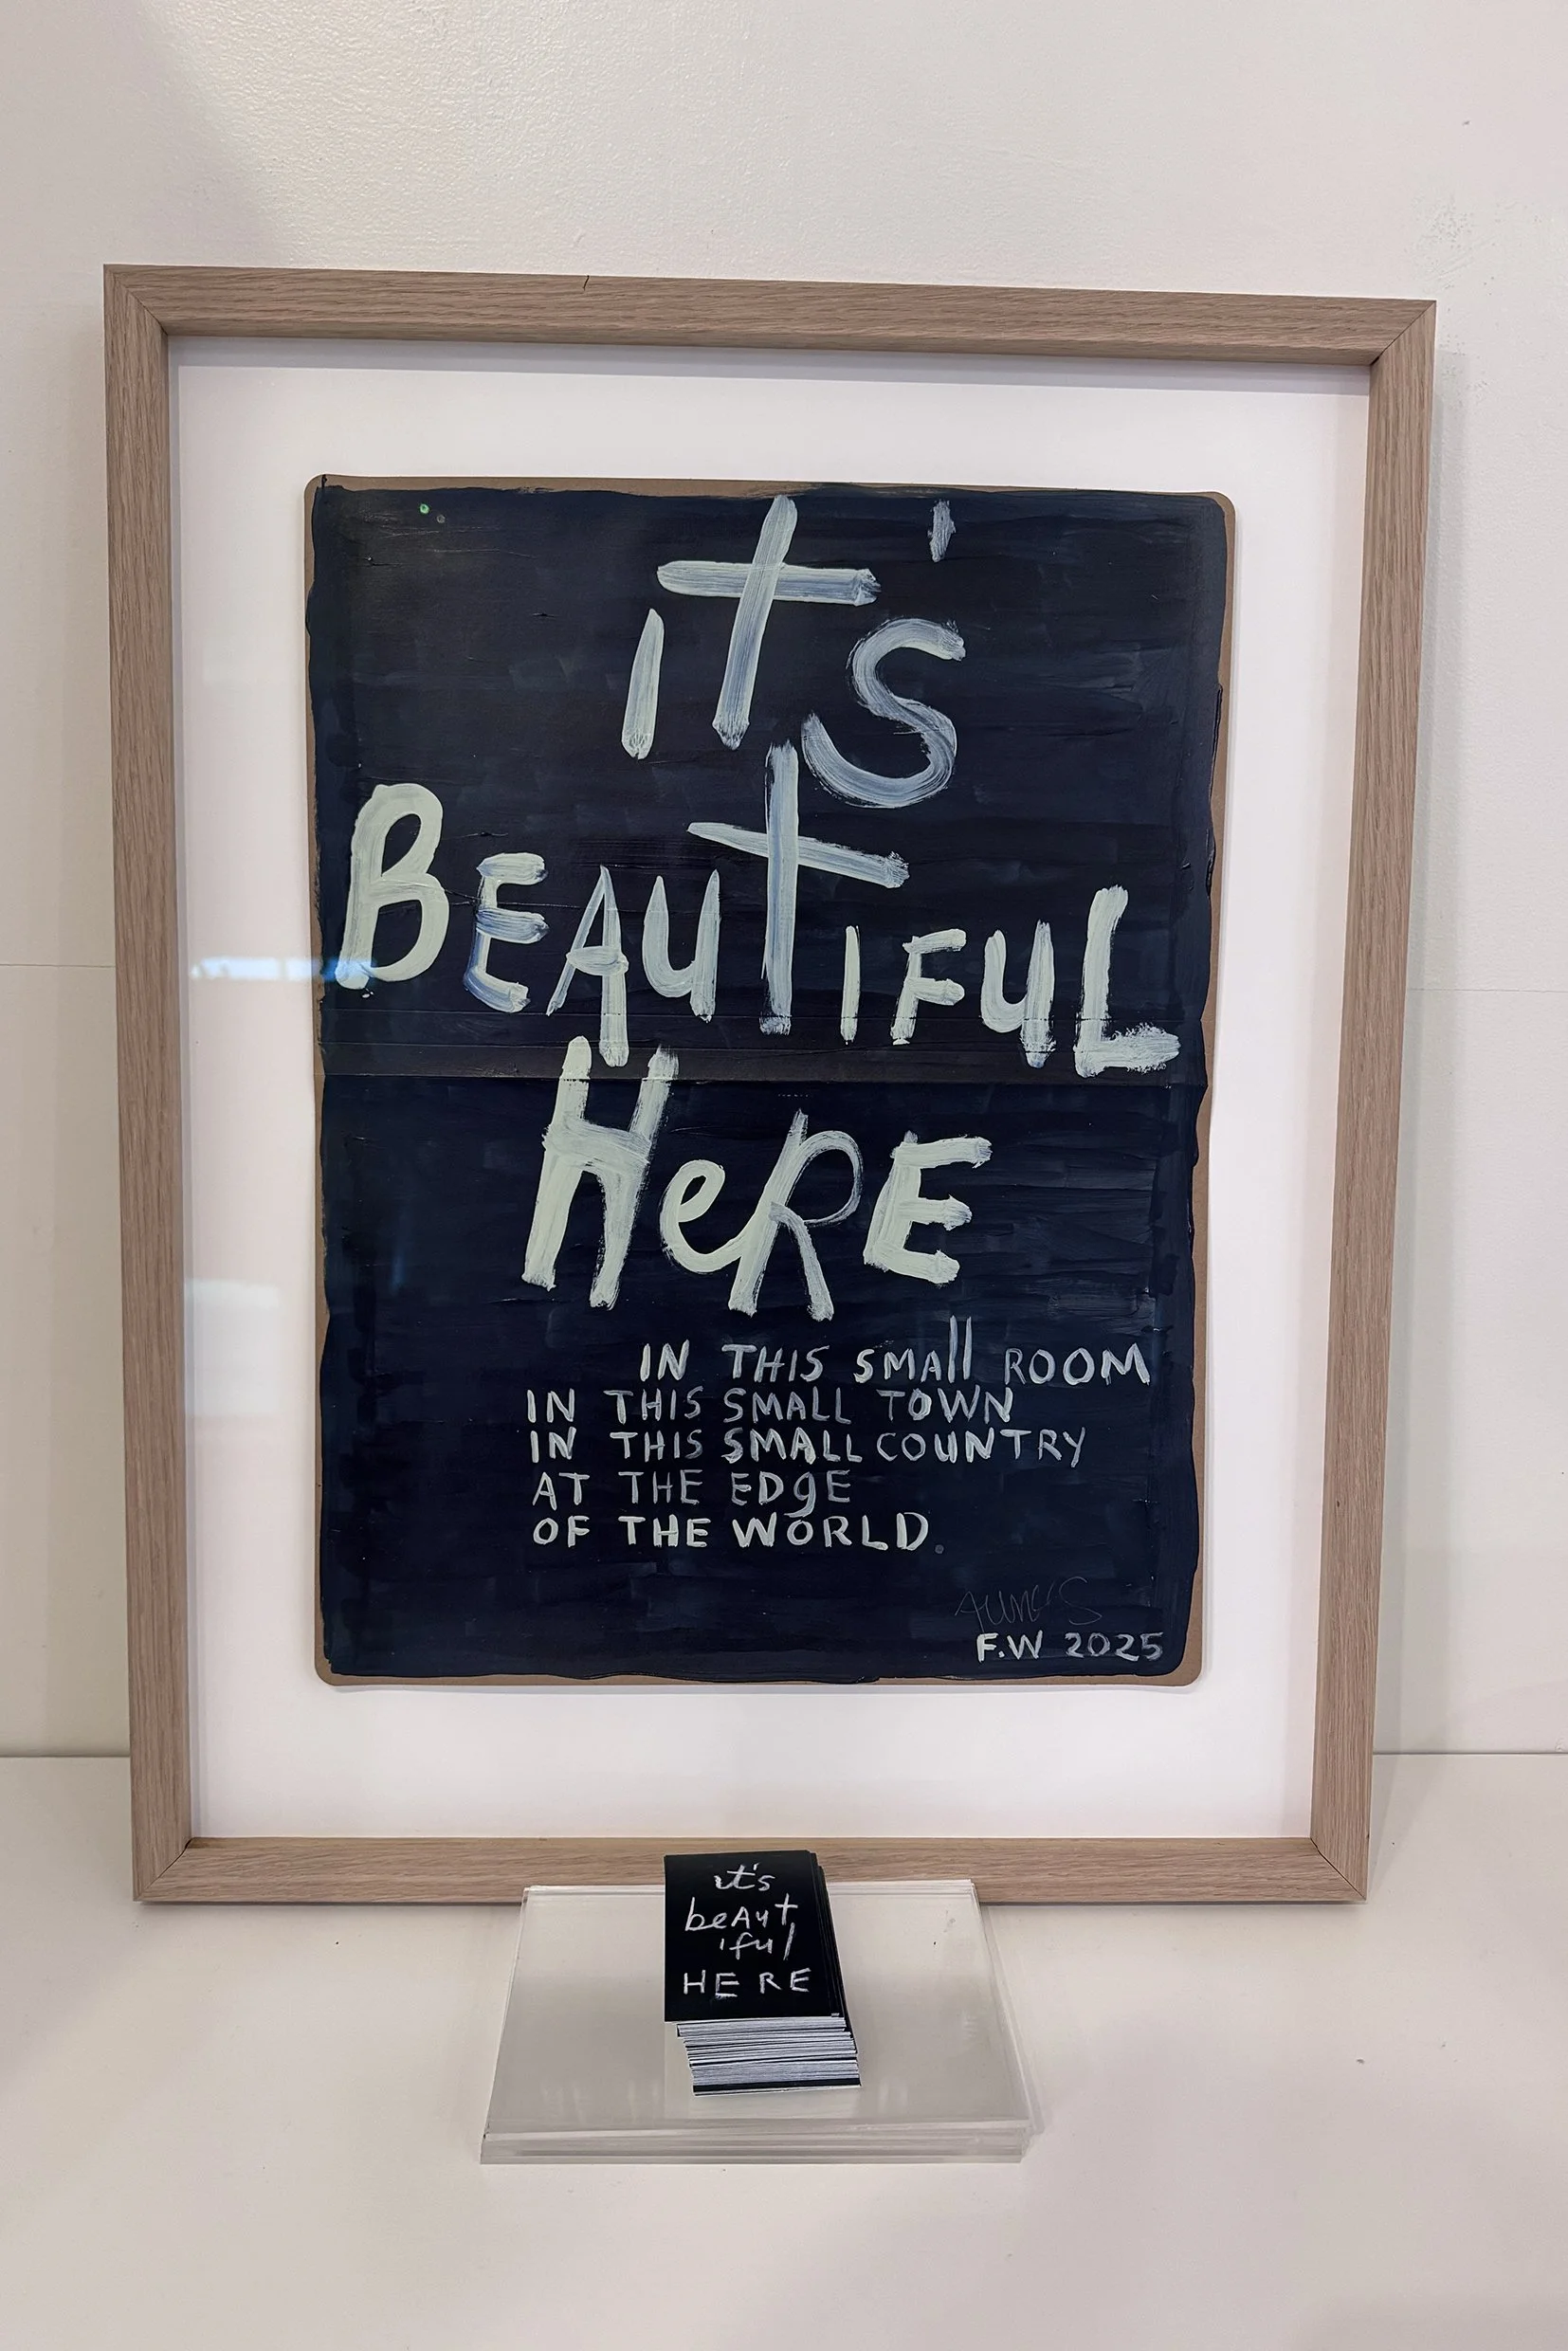 it's
BEAUTIFUL
HeRE
IN THIS SMAll ROOM
IN THIS SMALL TOWN
IN THIS SMALL COUNTRY
AT THE EDgE
OF THE WORLD.
F.W 2025
it's
beAut
iful
HERE